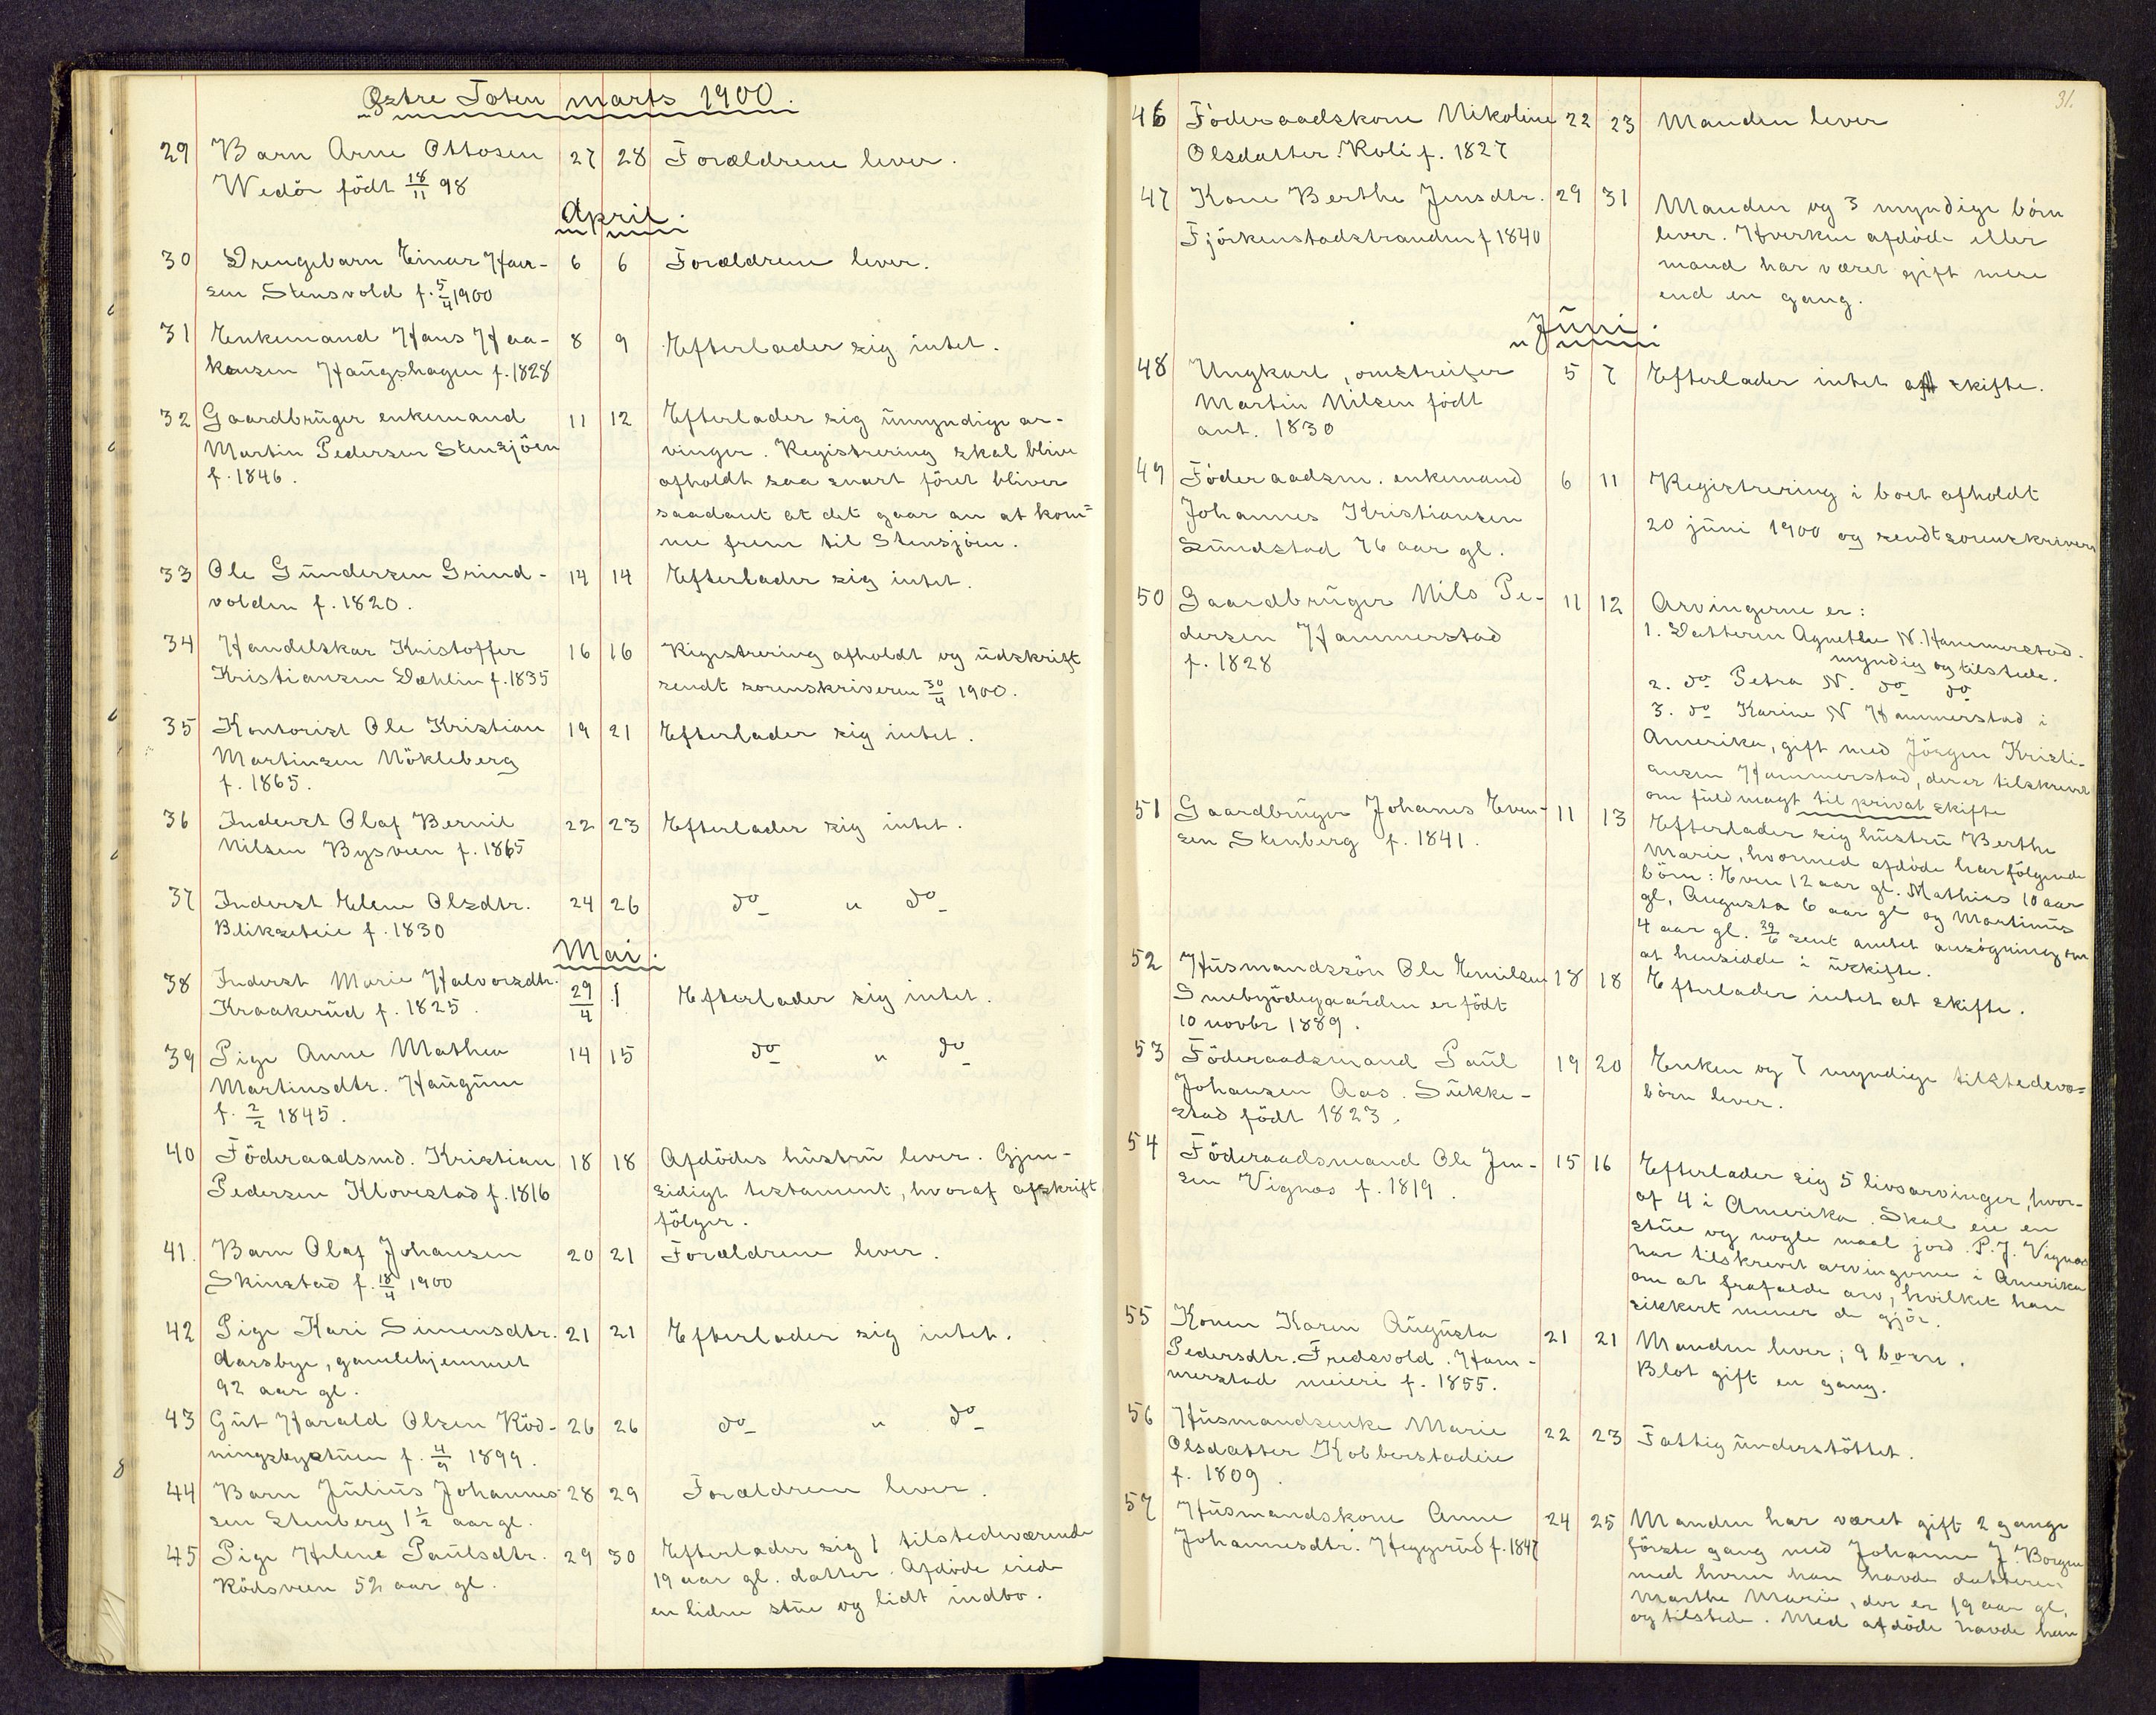 Østre Toten marts 1900.
29 Barn Arne Ottosen 27 28 Forældrene lever.
Wedör födt 18/11 98
April.
30 Drengebarn Einar Han- 6 6 Forældrene lever.
sen Stensvold f. 5/4 1900
31 Enkemand Hans Haa- 8 9 Efterlader sig intet.
kensen Haugshagen f. 1828
32 Gaardbruger enkemand 11 12 Efterlader sig umyndige ar-
Martin Pedersen Stensjöen vinger. Registrering skal blive
f. 1846. afholdt saa snart föret bliver
saadant at det gaar an at kom-
me frem til Stensjöen.
33 Ole Gundersen Grind- 14 14 Efterlader sig intet.
volden f. 1820.
34 Handelskar Kristoffer 16 16 Registrering afholdt og udskrift
Kristiansen Dæhlin f. 1835 sendt sorenskriveren 30/4 1900.
35 Kontorist Ole Kristian 19 21 Efterlader sig intet.
Martinsen Nökleberg
f. 1865.
36 Inderst Olaf Bernil 22 23 Efterlader sig intet.
Nilsen Bysveen f. 1865
37 Inderst Elene Olsdtr. 24 26 do " do
Blikseteie f. 1830
Mai.
38 Inderst Marie Halvorsdtr. 29/4 1 Efterlader sig intet.
Kraakerud f. 1825.
39 Pige Anne Mathea 14 15 do " do
Martinsdtr. Haugum
f. 2/2 1845.
40 Föderaadsmd. Kristian 18 18 Afdödes hustru lever. Gjen-
Pedersen Klovestad f. 1816 sidigt testament, hvoraf afskrift
fölger.
41. Barn Olaf Johansen 20 21 Forældrene lever.
Skinstad f. 18/4 1900
42 Pige Kari Simensdtr. 21 21 Efterlader sig intet.
Aarsbye, gamlehjemmet
92 aar gl.
43 Gut Harald Olsen Röd- 26 26 do " do
ningsbystuen f. 4/9 1899.
44 Barn Julius Johannes- 28 29 Forældrene lever.
sen Stenberg 1 1/2 aar gl.
45 Pige Helene Paulsdtr. 29 30 Efterlader sig 1 tilstedeværende
Rödsveen 52 aar gl. 19 aar gl. datter. Afdöde eiede
en liden stue og lidt indbo.
31.
46 Föderaadskone Nikoline 22 23 Manden lever
Olsdatter Roli f. 1827
47 Kone Berthe Jensdtr. 29 31 Manden og 3 myndige börn
Fjörkenstadstranden f 1840 lever. Hverken afdöde eller
mand har været gift mere
end en gang.
Juni.
48 Ungkarl, omstreifer 5 7 Efterlader intet at skifte.
Martin Nilsen födt
ant. 1830
49 Föderaadsm. enkemand 6 11 Registrering i boet afholdt
Johannes Kristiansen 20 juni 1900 og sendt sorenskriveren
Sundstad 76 aar gl.
50 Gaardbruger Nils Pe- 11 12 Arvingerne er:
dersen Hammerstad 1. Datteren Agnethe N. Hammerstad.
f. 1828 myndig og tilstede.
2. do Petra N. do do
3. do Karine N Hammerstad i
Amerika, gift med Jörgen Kristi-
ansen Hammerstad, der er tilskrevet
om fuldmagt til privat skifte
51 Gaardbruger Johanes Even- 11 13 Efterlader sig hustru Berthe
sen Stenberg f. 1841. Marie, hvormed afdöde har fölgende
börn: Even 12 aar gl. Mathias 10 aar
gl, Augusta 6 aar gl og Martinus
4 aar gl. 29/6 sent amtet ansögning om
at hensidde i uskifte.
52 Husmandssön Ole Emilsen 18 18 Efterlader intet at skifte.
Smebyödegaarden er födt
10 novbr 1889.
53 Föderaadsmand Paul 19 20 Enken og 7 myndige tilstedevæ-
Johansen Aas. Sukke- börn lever.
stad födt 1823.
54 Föderaadsmand Ole Jen- 15 16 Efterlader sig 5 livsarvinger, hvor-
sen Vignas f. 1819. af 4 i Amerika. Skal eie en
stue og nogle maal jord. P. J. Vignas
har tilskrevet arvingerne i Amerika
om at frafalde arv, hvilket han
sikkert mener de gjör.
55 Konen Karen Augusta 21 21 Manden lever; 9 börn.
Pedersdtr. Fredsvold. Ham- Blot gift en gang.
merstad meieri f. 1855.
56 Husmandsenke Marie 22 23 Fattigunderstöttet.
Olsdatter Kobberstadeie
f. 1809.
57 Husmandskone Anne 24 25 Manden har været gift 2 gange
Johannesdtr. Heggerud f. 1847 förste gang med Johanne J. Borgen
med hvem han havde datteren
Marthe Marie, der er 19 aar gl.
og tilstede. Med afdöde havde han